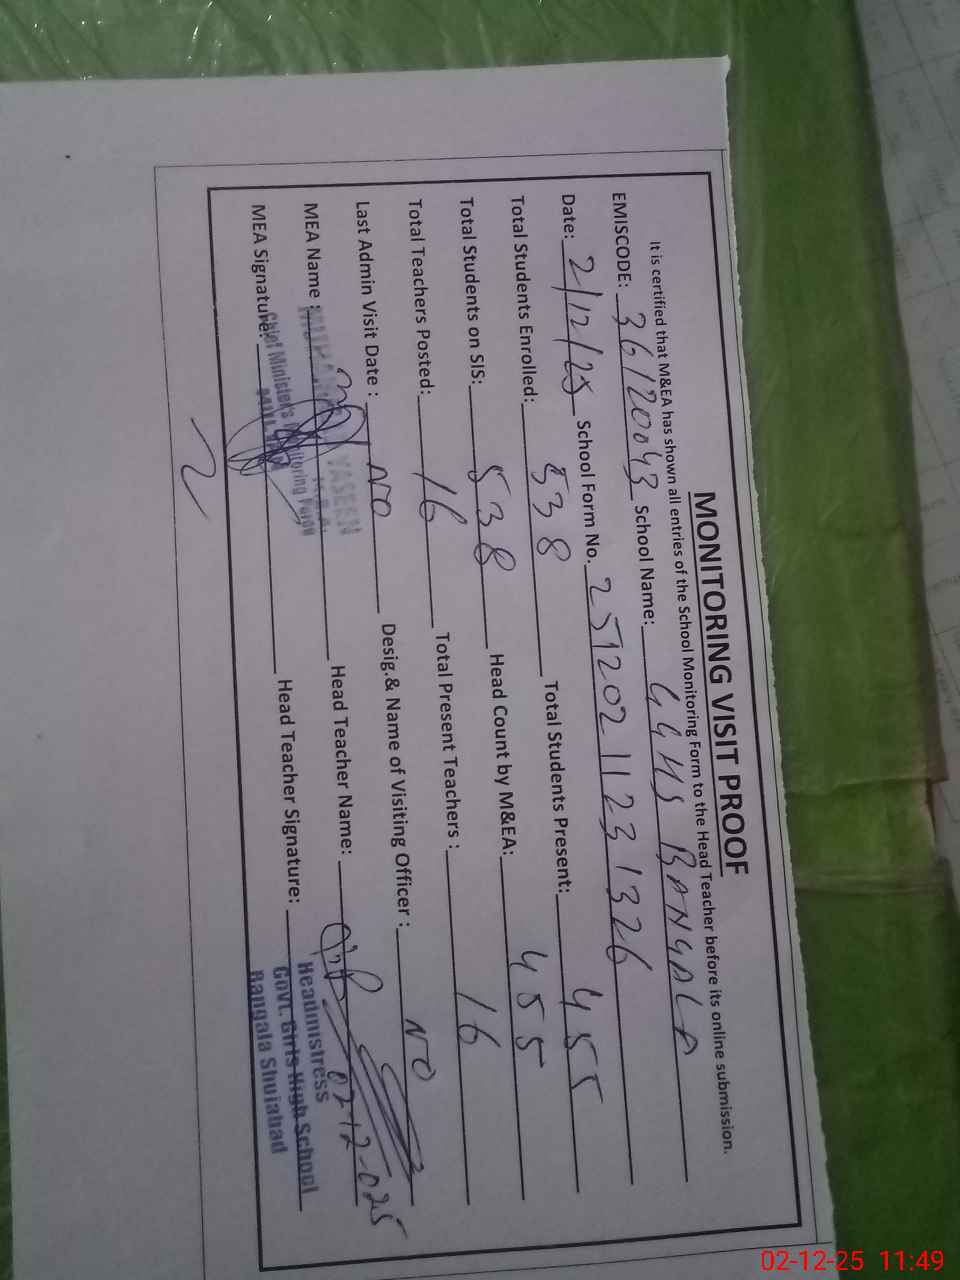 MONITORING VISIT PROOF
It is certified that M&EA has shown all entries of the School Monitoring Form to the Head Teacher before its online submission.
EMISCODE: 36120043 School Name: GGHS BANGALA
Date: 2/12/25 School Form No. 25120211231326
Total Students Enrolled: 538 Total Students Present: 455
Total Students on SIS: 538 Head Count by M&EA: 455
Total Teachers Posted: 16 Total Present Teachers : 16
Last Admin Visit Date : NO Desig.& Name of Visiting Officer : NO
MEA Name : YASEEN Head Teacher Name:
02-12-025
MEA Signature: Head Teacher Signature:
Chief Minister's Monitoring Force
Headmistress
Govt. Girls High School
Bangala Shujabad
02-12-25 11:49